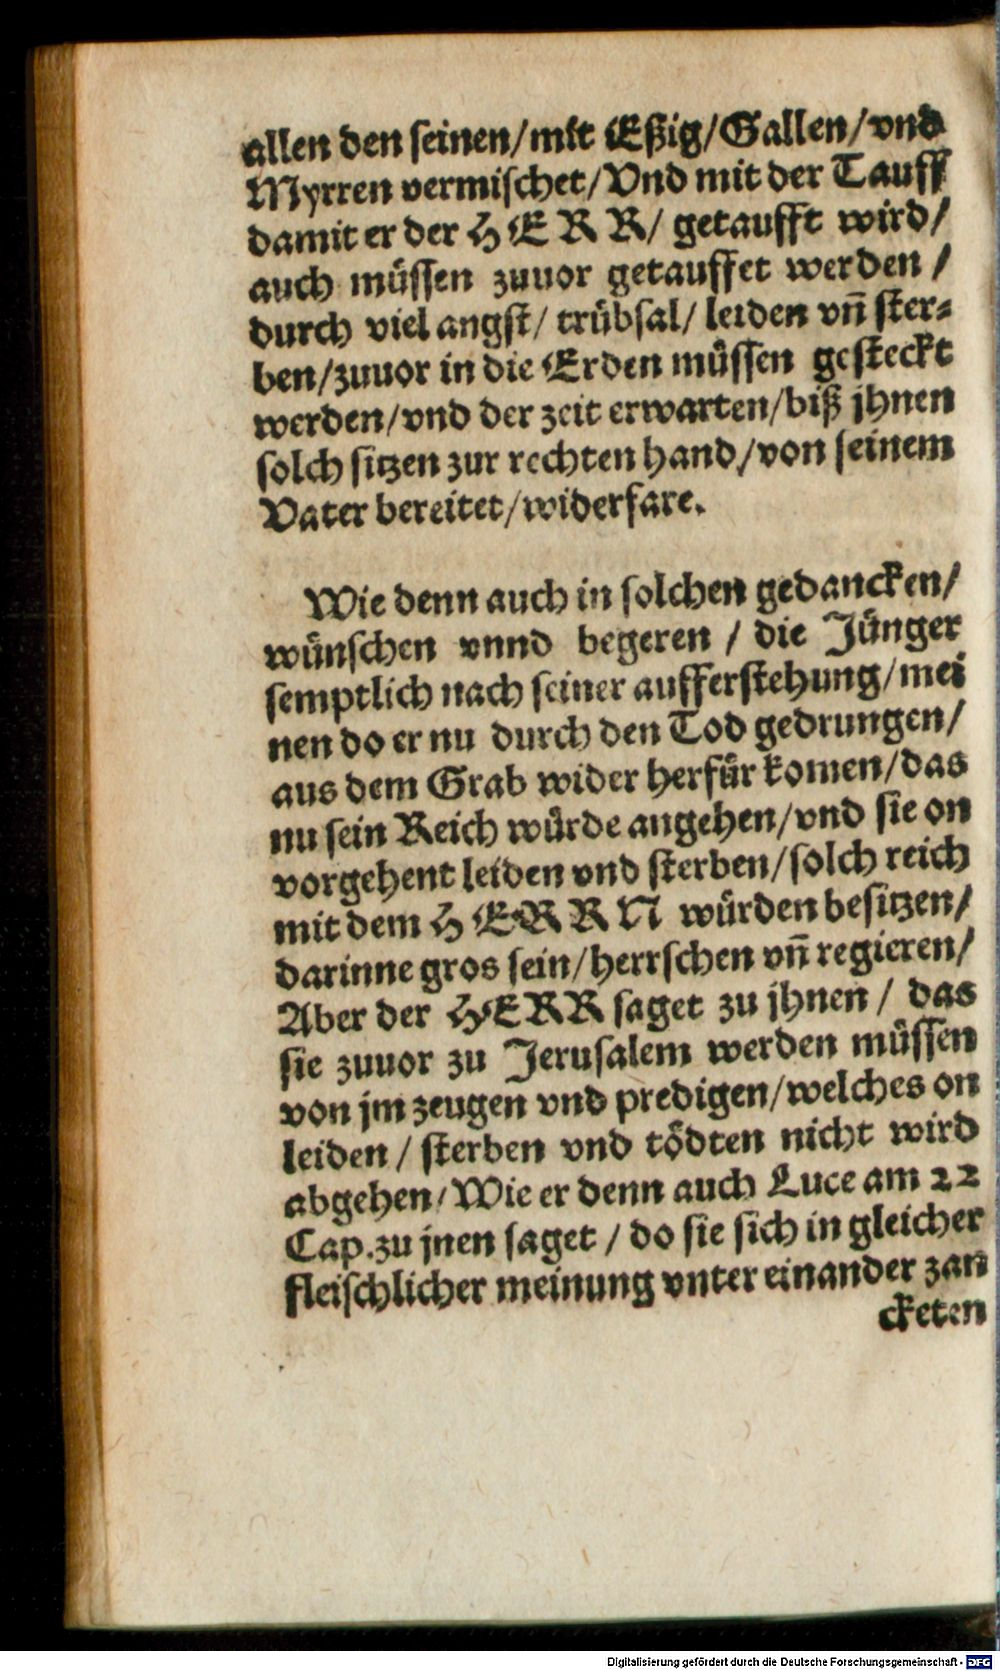 allen den seinen/mit Eßig/Gallen/vnd
Myrren vermischet/Vnd mit der Tauff
damit er der HERR/ getaufft wird/
auch müssen zuuor getauffet werden /
durch viel angst/ trübsal/ leiden vn̄ ster-
ben/zuuor in die Erden müssen gesteckt
werden/vnd der zeit erwarten/biß jhnen
solch sitzen zur rechten hand/von seinem
Vater bereitet/widerfare.
Wie denn auch in solchen gedancken/
wünschen vnnd begeren / die Jünger
semptlich nach seiner aufferstehung/mei
nen do er nu durch den Tod gedrungen/
aus dem Grab wider herfür komen/das
nu sein Reich würde angehen/vnd sie on
vorgehent leiden vnd sterben/solch reich
mit dem HERRN würden besitzen/
darinne gros sein/herrschen vn̄ regieren/
Aber der HERR saget zu jhnen / das
sie zuuor zu Jerusalem werden müssen
von jm zeugen vnd predigen/welches on
leiden / sterben vnd tödten nicht wird
abgehen/Wie er denn auch Luce am 22
Cap.zu jnen saget / do sie sich in gleicher
fleischlicher meinung vnter einander zan
cketen
Digitalisierung gefördert durch die Deutsche Forschungsgemeinschaft - DFG